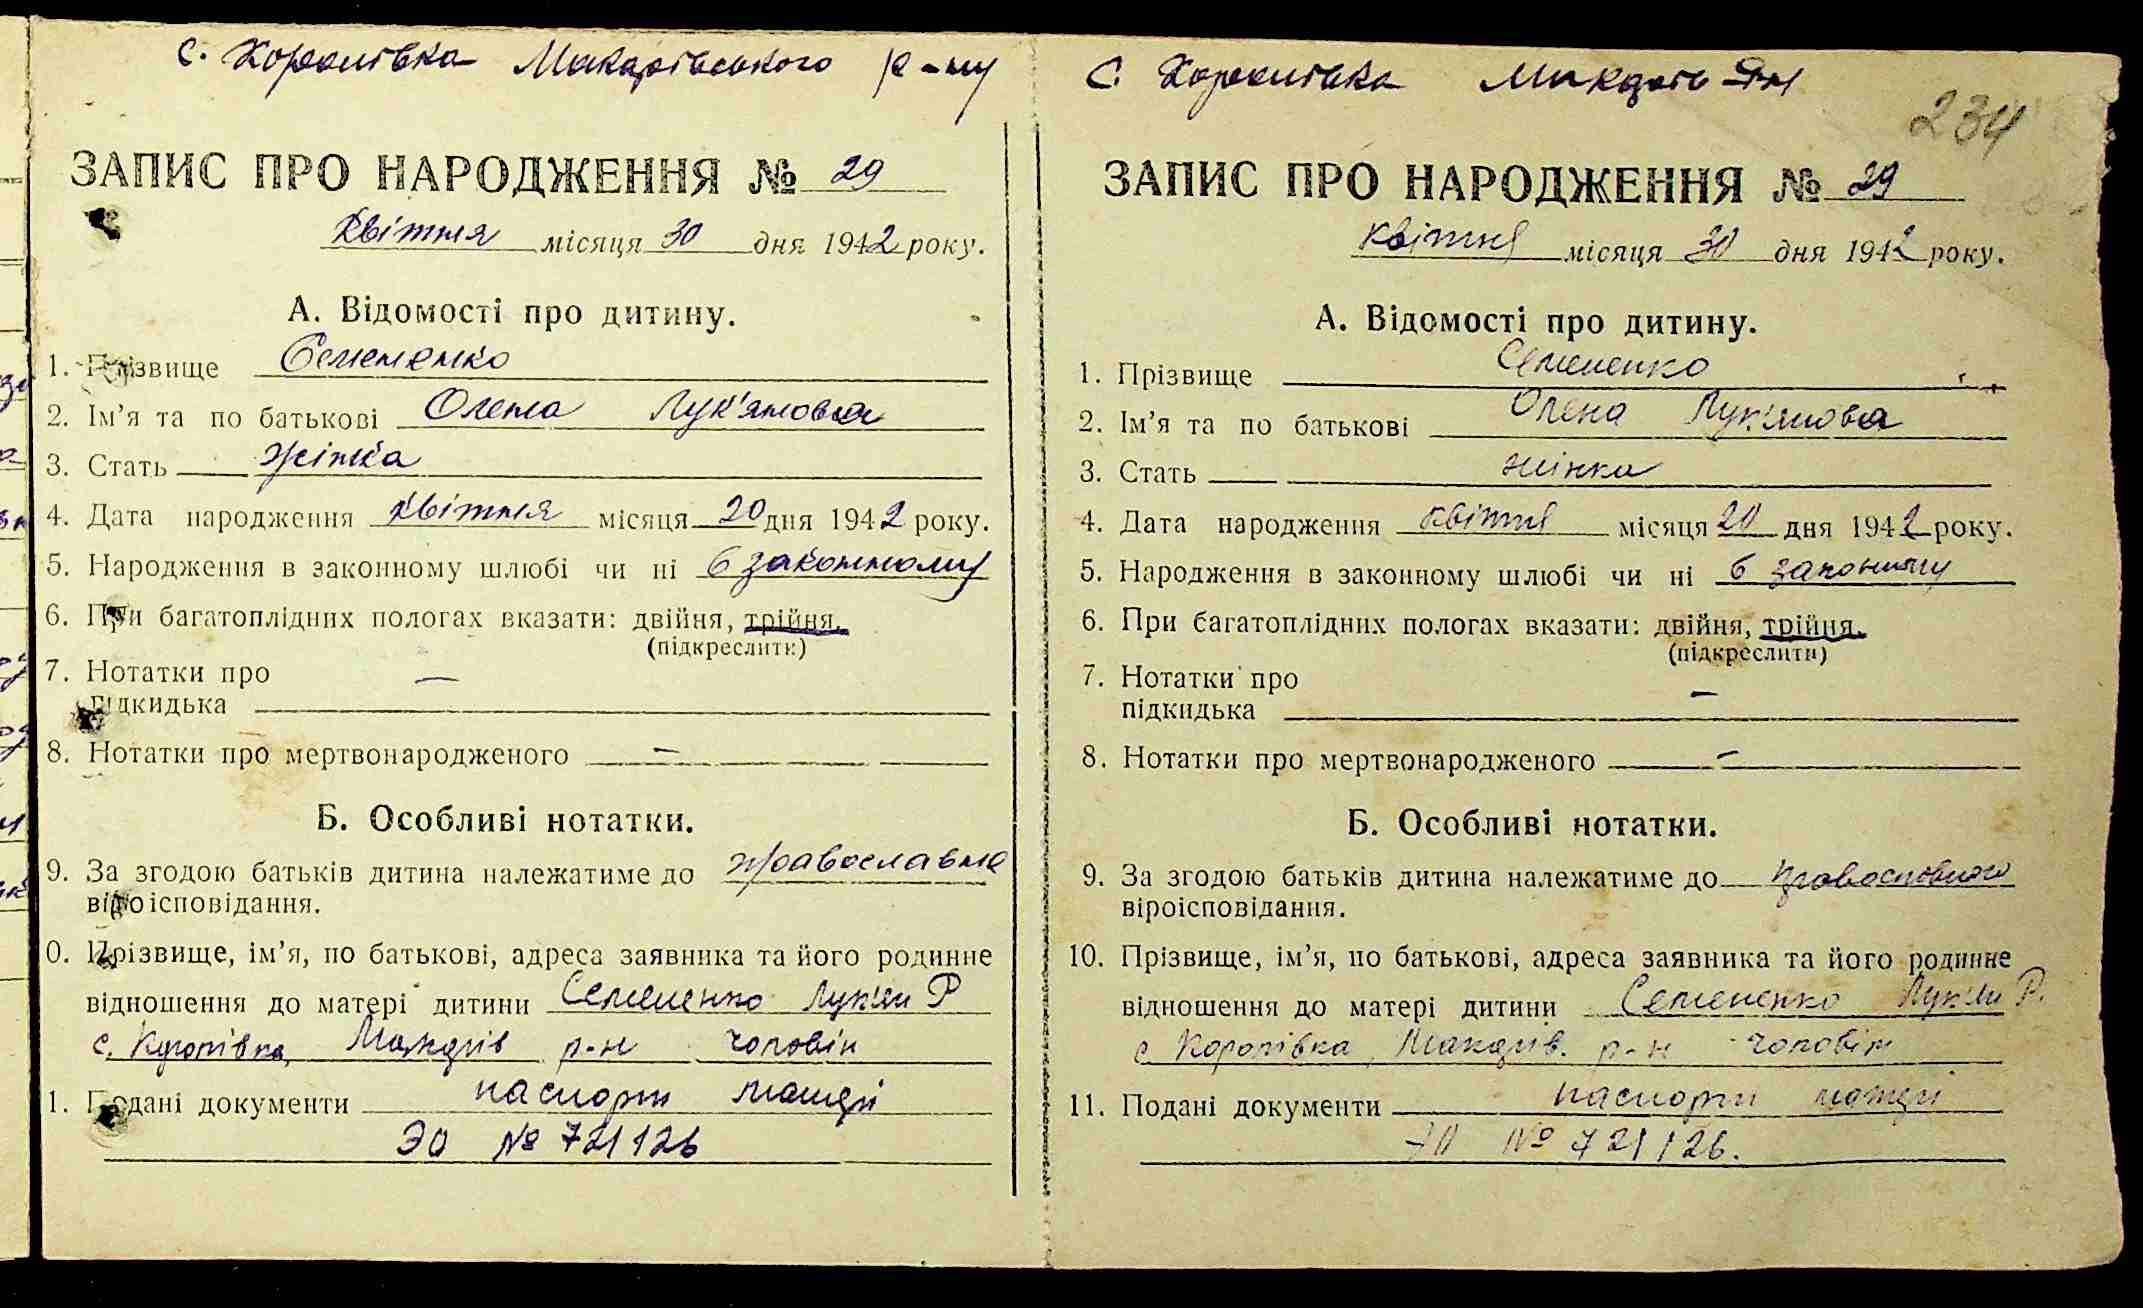 с. Королівка Макарівського р-ну
ЗАПИС ПРО НАРОДЖЕННЯ № 29
квітня місяця 30 дня 1942 року.
А. Відомості про дитину.
1. Прізвище Семененко
2. Ім'я та по батькові Олена Лук'янова
3. Стать жінка
4. Дата народження квітня місяця 20 дня 1942 року.
5. Народження в законному шлюбі чи ні в законному
6. При багатоплідних пологах вказати: двійня, трійня.
(підкреслити)
7. Нотатки про —
підкидька
8. Нотатки про мертвонародженого —
Б. Особливі нотатки.
9. За згодою батьків дитина належатиме до православна
віроісповідання.
0. Прізвище, ім'я, по батькові, адреса заявника та його родинне
відношення до матері дитини Семененко Лук'ян Р
с. Королівка, Макарів р-н чоловік
1. Подані документи паспорт матері
ЭО № 721126
с. Королівка
234
ЗАПИС ПРО НАРОДЖЕННЯ № 29
квітня місяця 30 дня 1942 року.
А. Відомості про дитину.
1. Прізвище Семененко
2. Ім'я та по батькові Олена Лук'янова
3. Стать жінка
4. Дата народження квітня місяця 20 дня 1942 року.
5. Народження в законному шлюбі чи ні в законному
6. При багатоплідних пологах вказати: двійня, трійня.
(підкреслити)
7. Нотатки про —
підкидька
8. Нотатки про мертвонародженого —
Б. Особливі нотатки.
9. За згодою батьків дитина належатиме до православного
віроісповідання.
10. Прізвище, ім'я, по батькові, адреса заявника та його родинне
відношення до матері дитини Семененко Лук'ян Р.
с Королівка, Макарів. р-н чоловік
11. Подані документи паспорт матері
ЭО № 721126.